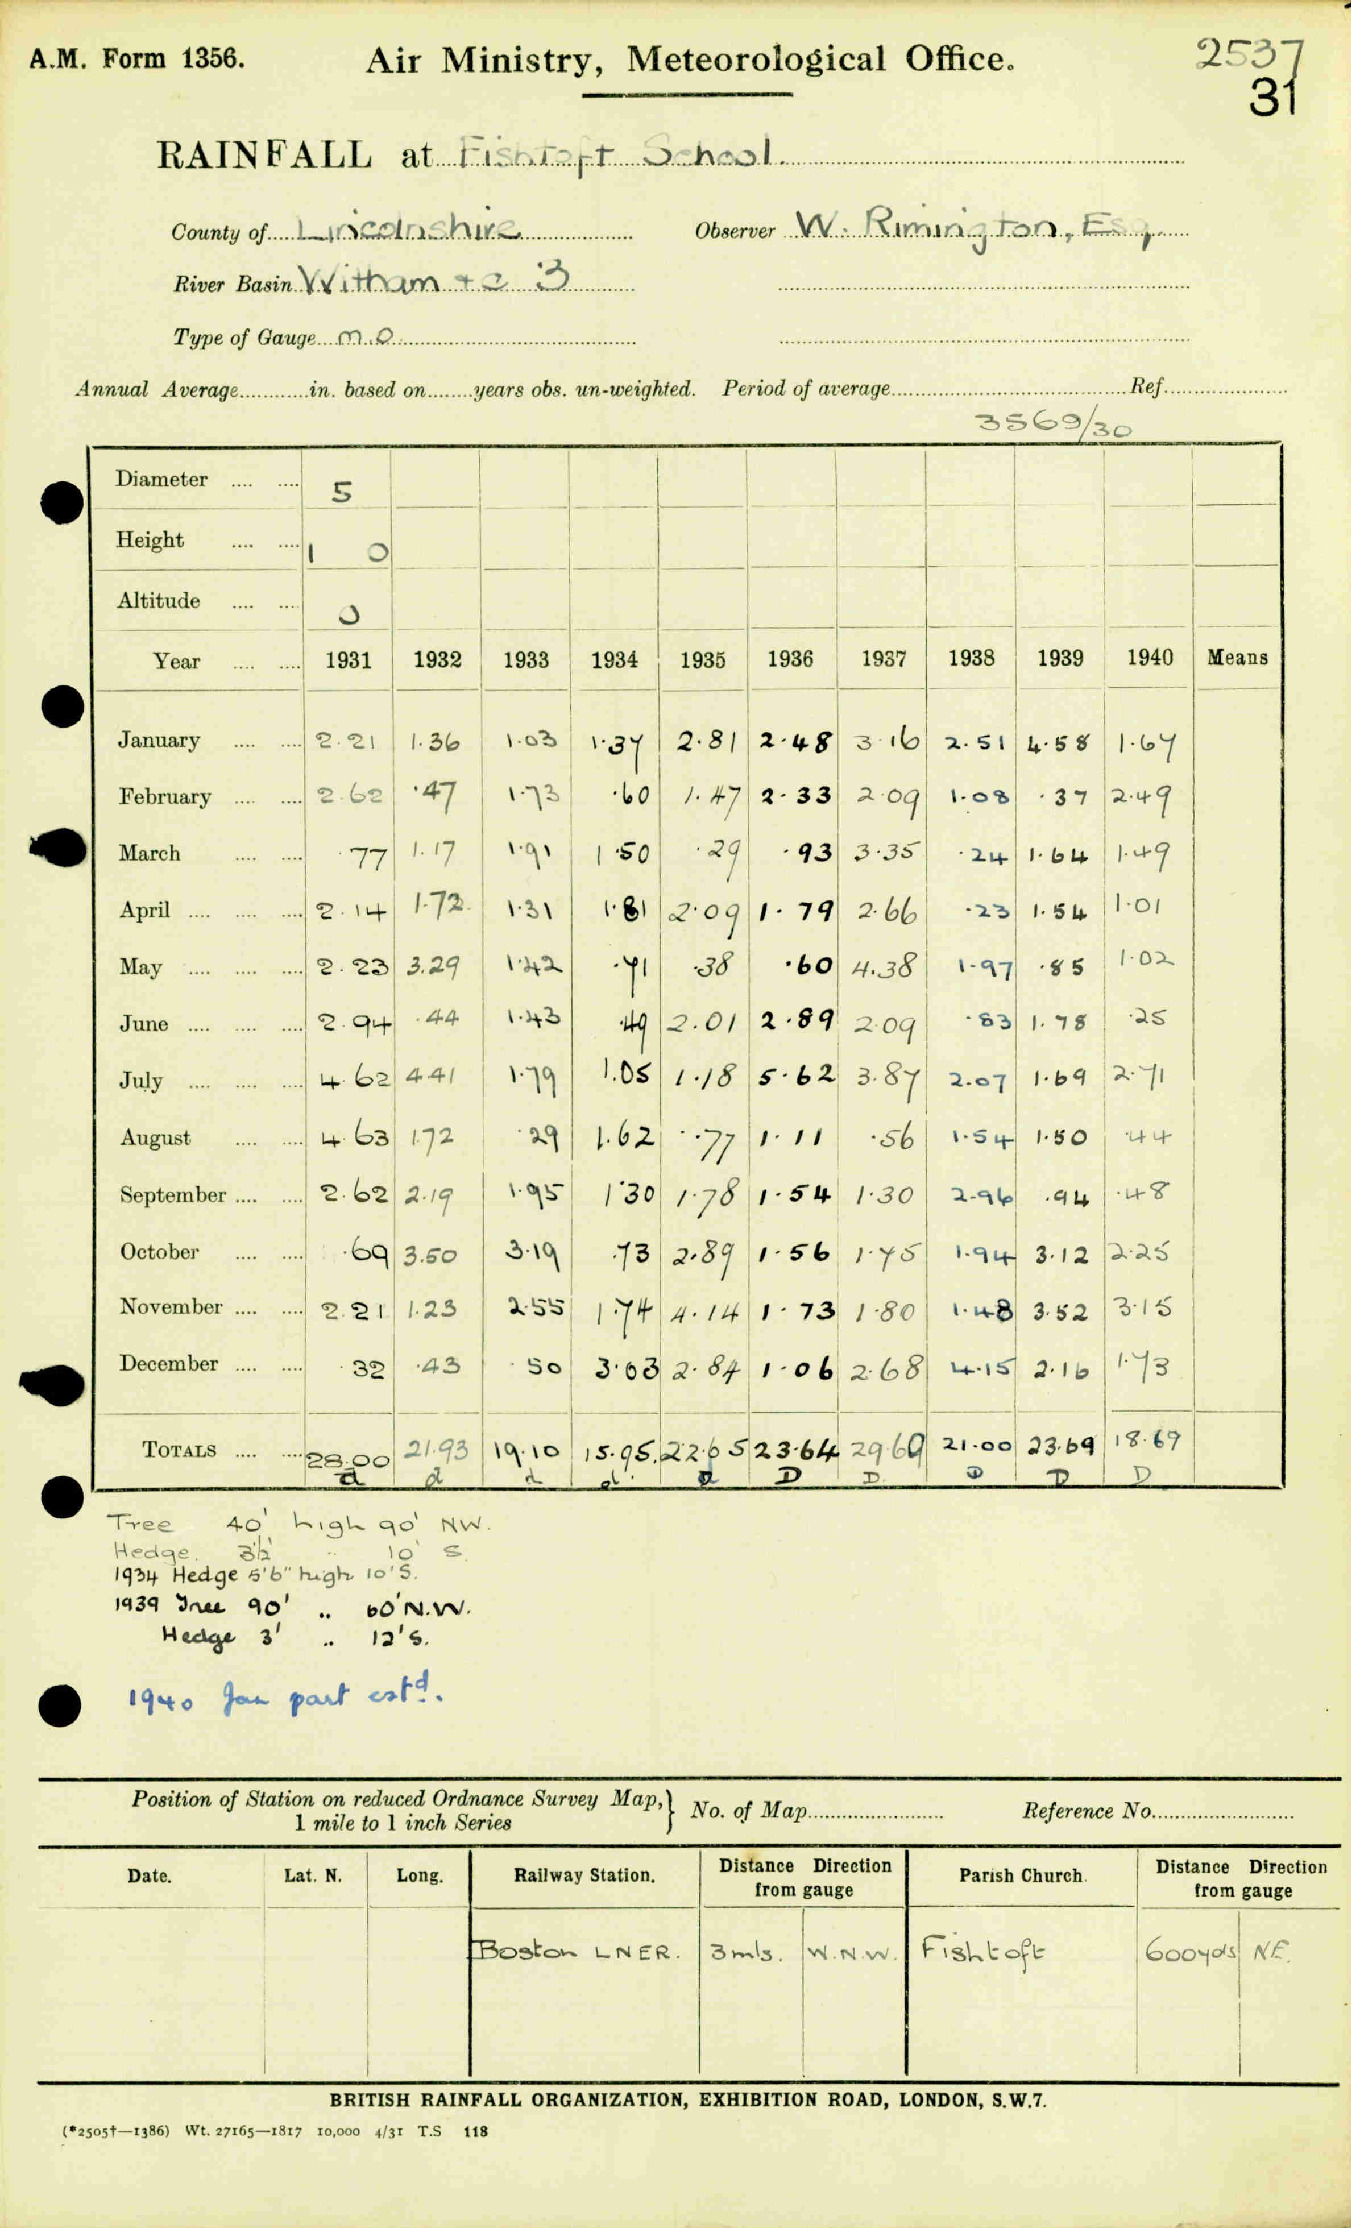 A.M. Form 1356. Air Ministry, Meteorological Office. 2537
31
RAINFALL at Fishtoft School.
County of Lincolnshire Observer W. Rimington, Esq.
River Basin Witham +c 3
Type of Gauge m.o.
Annual Average in. based on years obs. un-weighted. Period of average Ref.
3569/30
Diameter 5
Height 1 0
Altitude 0
Year 1931 1932 1933 1934 1935 1936 1937 1938 1939 1940 Means
January 2.21 1.36 1.03 1.37 2.81 2.48 3.16 2.51 4.58 1.67
February 2.62 .47 1.73 .60 1.47 2.33 2.09 1.08 .37 2.49
March .77 1.17 1.91 1.50 .29 .93 3.35 .24 1.64 1.49
April 2.14 1.72 1.31 1.81 2.09 1.79 2.66 .23 1.54 1.01
May 2.23 3.29 1.42 .71 .38 .60 4.38 1.97 .85 1.02
June 2.94 .44 1.43 .49 2.01 2.89 2.09 .83 1.78 .25
July 4.62 4.41 1.79 1.05 1.18 5.62 3.87 2.07 1.69 2.71
August 4.63 1.72 .29 1.62 .77 1.11 .56 1.54 1.50 .44
September 2.62 2.19 1.95 1.30 1.78 1.54 1.30 2.96 .94 .48
October .69 3.50 3.19 .73 2.89 1.56 1.75 1.94 3.12 2.25
November 2.21 1.23 2.55 1.74 4.14 1.73 1.80 1.48 3.52 3.15
December .32 .43 .50 3.03 2.84 1.06 2.68 4.15 2.16 1.73
TOTALS 28.00 21.93 19.10 15.95. 22.65 23.64 29.69 21.00 23.69 18.69
d d d d d D D D D D
Tree 40' high 90' NW.
Hedge. 3½' .. 10' S
1934 Hedge 5'6" high 10'S.
1939 Tree 90' .. 60'N.W.
Hedge 3' .. 12'S.
1940 Jan part estd.
Position of Station on reduced Ordnance Survey Map,} No. of Map Reference No.
1 mile to 1 inch Series
Date. Lat. N. Long. Railway Station. Distance Direction from gauge Parish Church. Distance Direction from gauge
Boston LNER. 3 mls. W.N.W. Fishtoft 600yds NE.
BRITISH RAINFALL ORGANIZATION, EXHIBITION ROAD, LONDON, S.W.7.
(*2505†—1386) Wt. 27165—1817 10,000 4/31 T.S 118